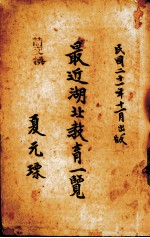 民國二十一年十一月出版
最近湖北教育一覽
夏元瑮